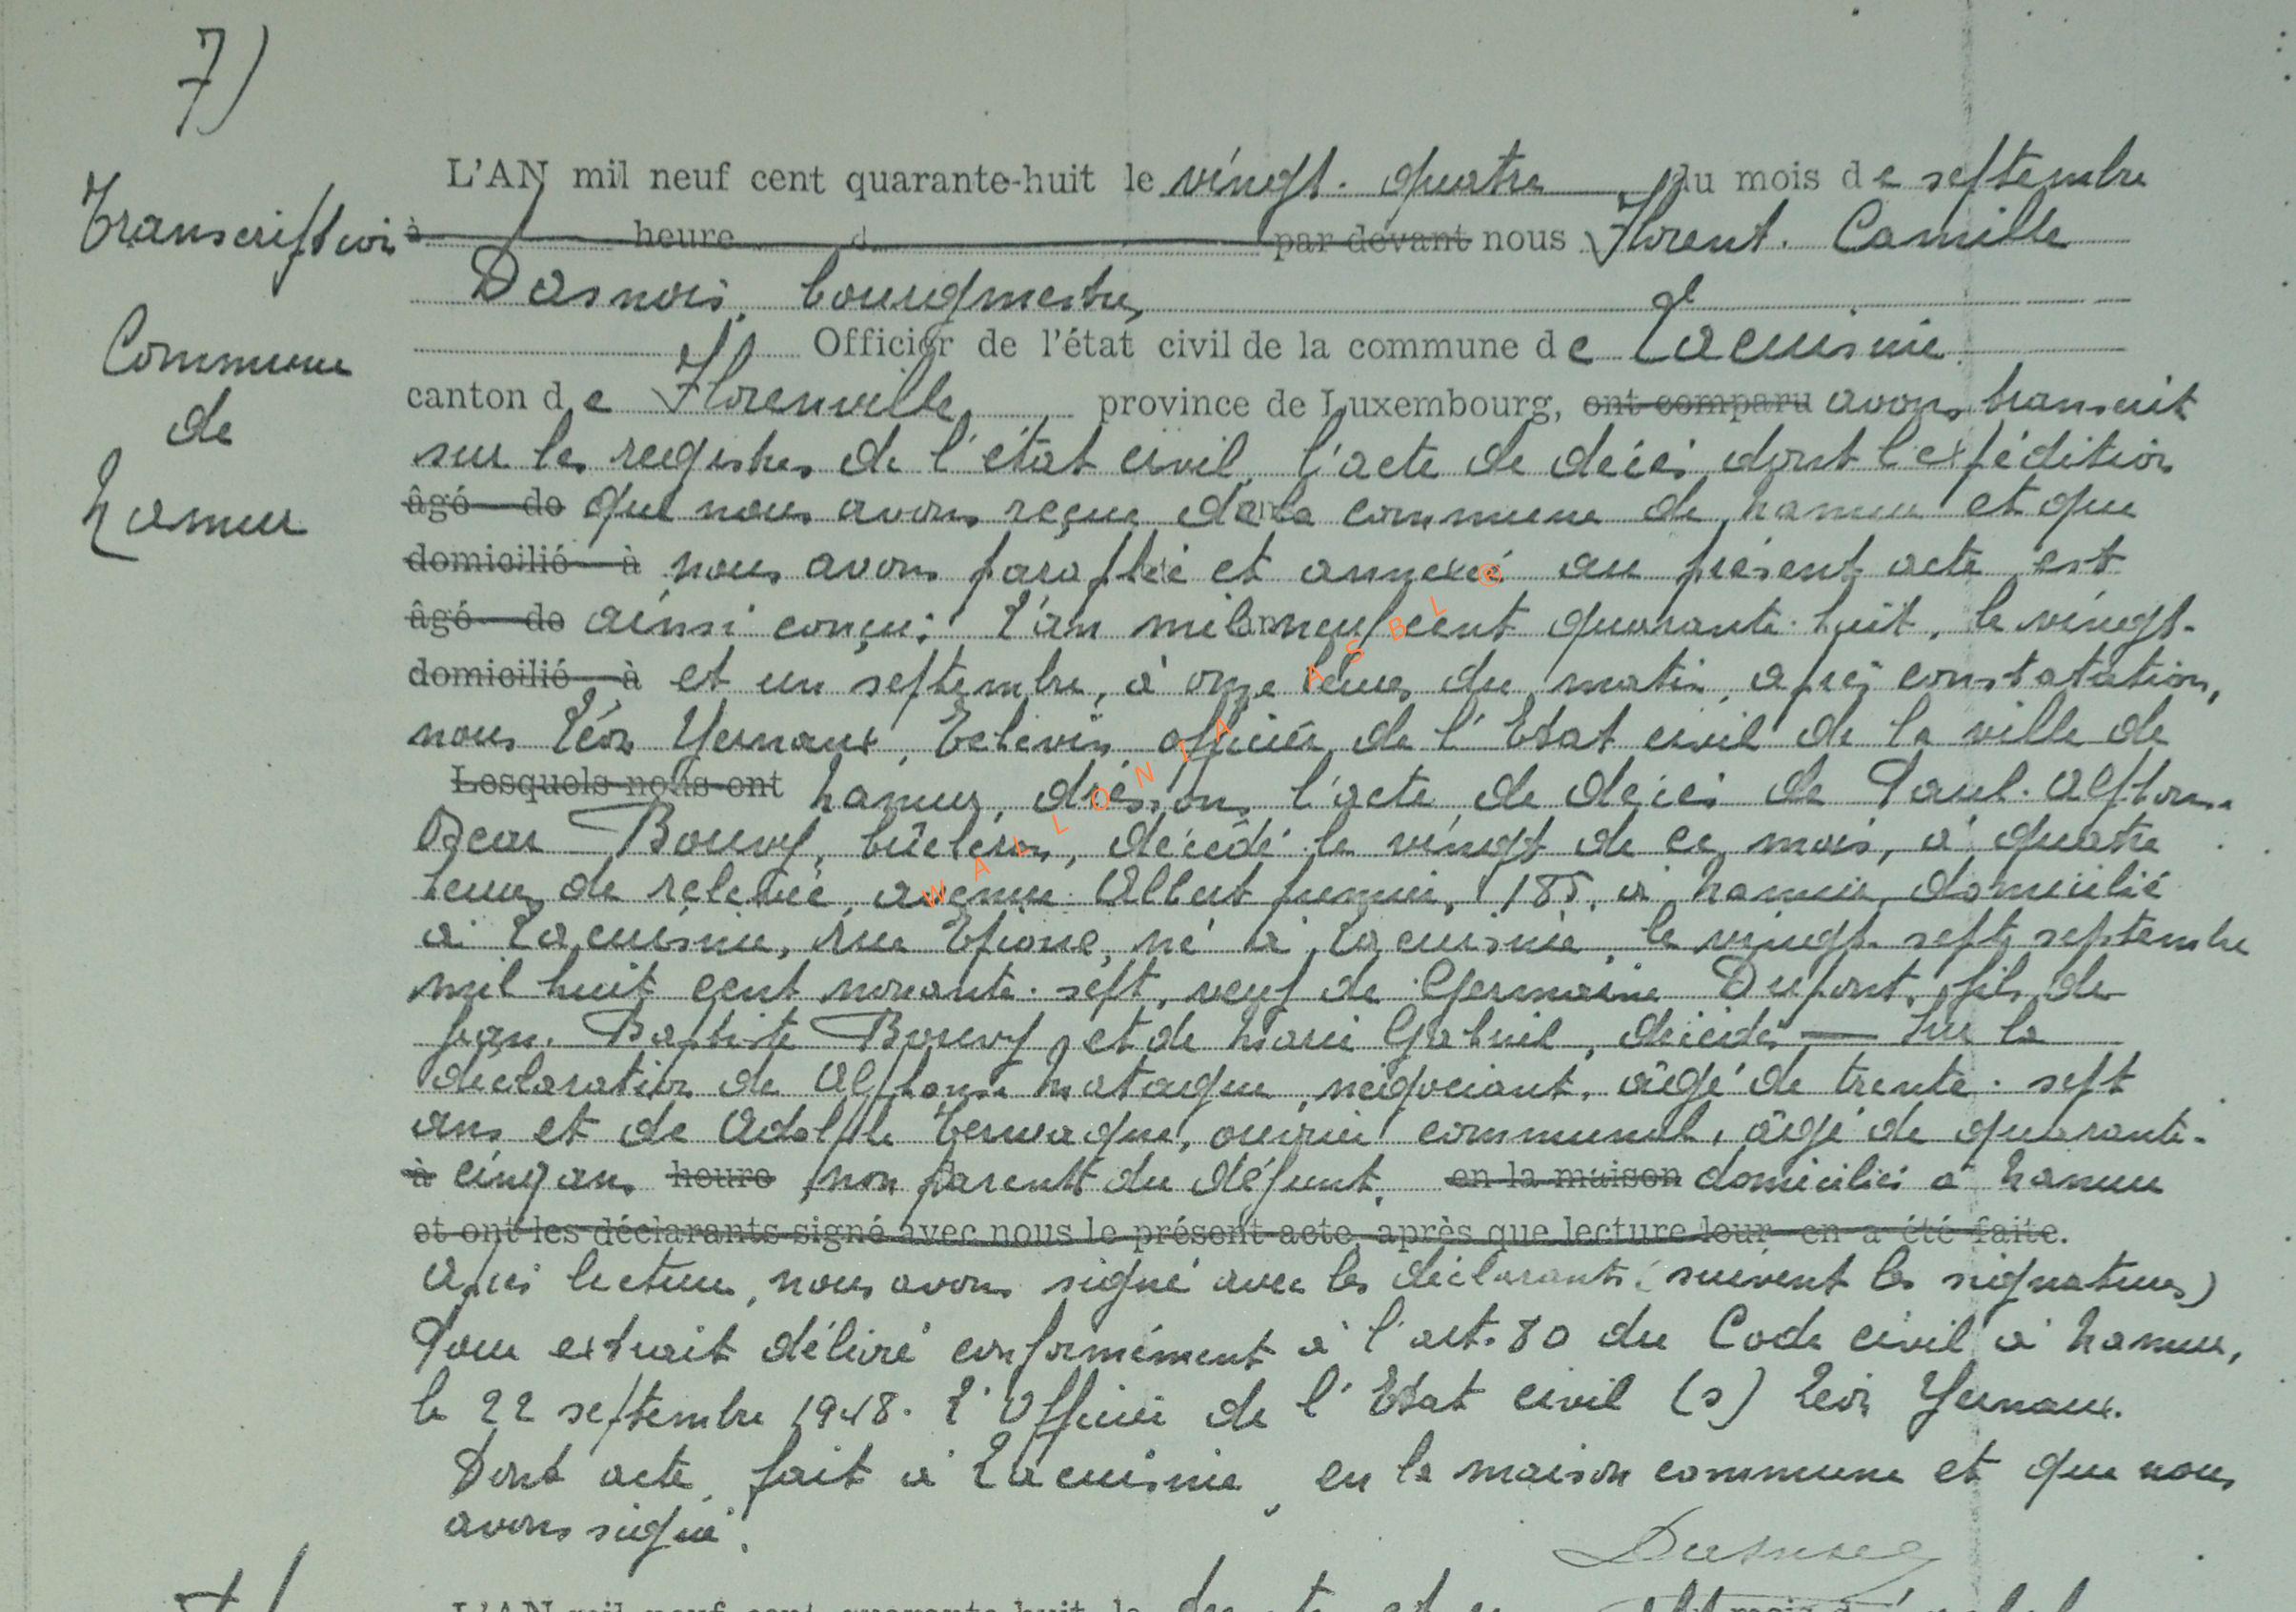 7)
L'AN mil neuf cent quarante-huit le vingt-quatre du mois de septembre
Transcription
à heure d par devant nous Florent. Camille
Dasnois, bourgmestre,
Commune
Officier de l'état civil de la commune de Lacuisine
canton de Florenville, province de Luxembourg, ont comparu avons transcrit
de
sur les registres de l'état civil, l'acte de décès dont l'expédition
Namur
âgé de que nous avons reçue de la commune de Namur et que
domicilié à nous avons paraphée et annexée au présent acte est
âgé de ainsi conçu: L'an mil neuf cent quarante-huit, le vingt-
domicilié à et un septembre, à onze heures du matin, après constatation,
nous Léon Yernaux, Echevin, officier de l'Etat civil de la ville de
Lesquels nous ont Namur, dressons l'acte de décès de Paul-Alphonse
Oscar Bouvy, bûcheron, décédé le vingt de ce mois, à quatre
heures de relevée, avenue Albert premier, 185, à Namur, domicilié
à Lacuisine, rue né à Lacuisine, le vingt-sept septembre
mil huit cent nonante-sept, veuf de Germaine Dupont, fils de
Jean-Baptiste Bouvy et de Marie Gabriel, décédés — Sur la
déclaration de Alphonse Mataigne, négociant, âgé de trente-sept
ans et de Adolphe Terwagne, ouvrier communal, âgé de quarante-
à cinq ans heure non parents du défunt, en la maison domiciliés à Namur
et ont les déclarants signé avec nous le présent acte, après que lecture leur en a été faite.
Après lecture, nous avons signé avec les déclarants (suivent les signatures)
Pour extrait délivré conformément à l'art. 80 du Code civil à Namur,
le 22 septembre 1948. L'Officier de l'Etat civil (s) Léon Yernaux.
Dont acte, fait à Lacuisine, en la maison commune et que nous
avons signé.
WALLONIA ASBL ©
L'AN mil neuf cent quarante-huit le